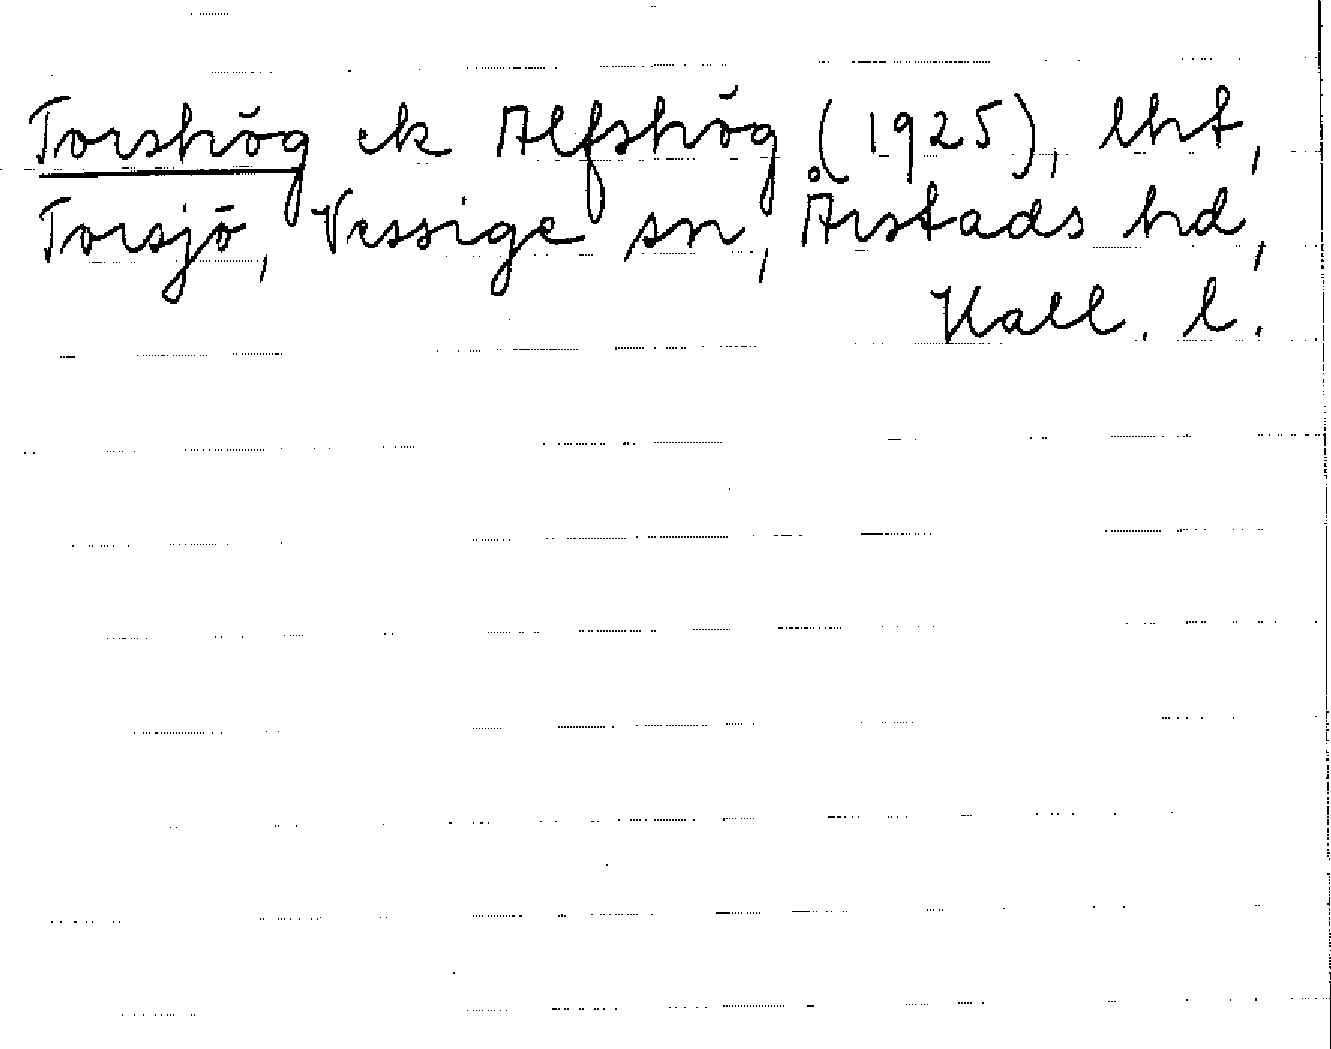 Torshög ek Alfshög (1925), lht,
Torsjö, Vessige sn, Årstads hd,
Hall. l.